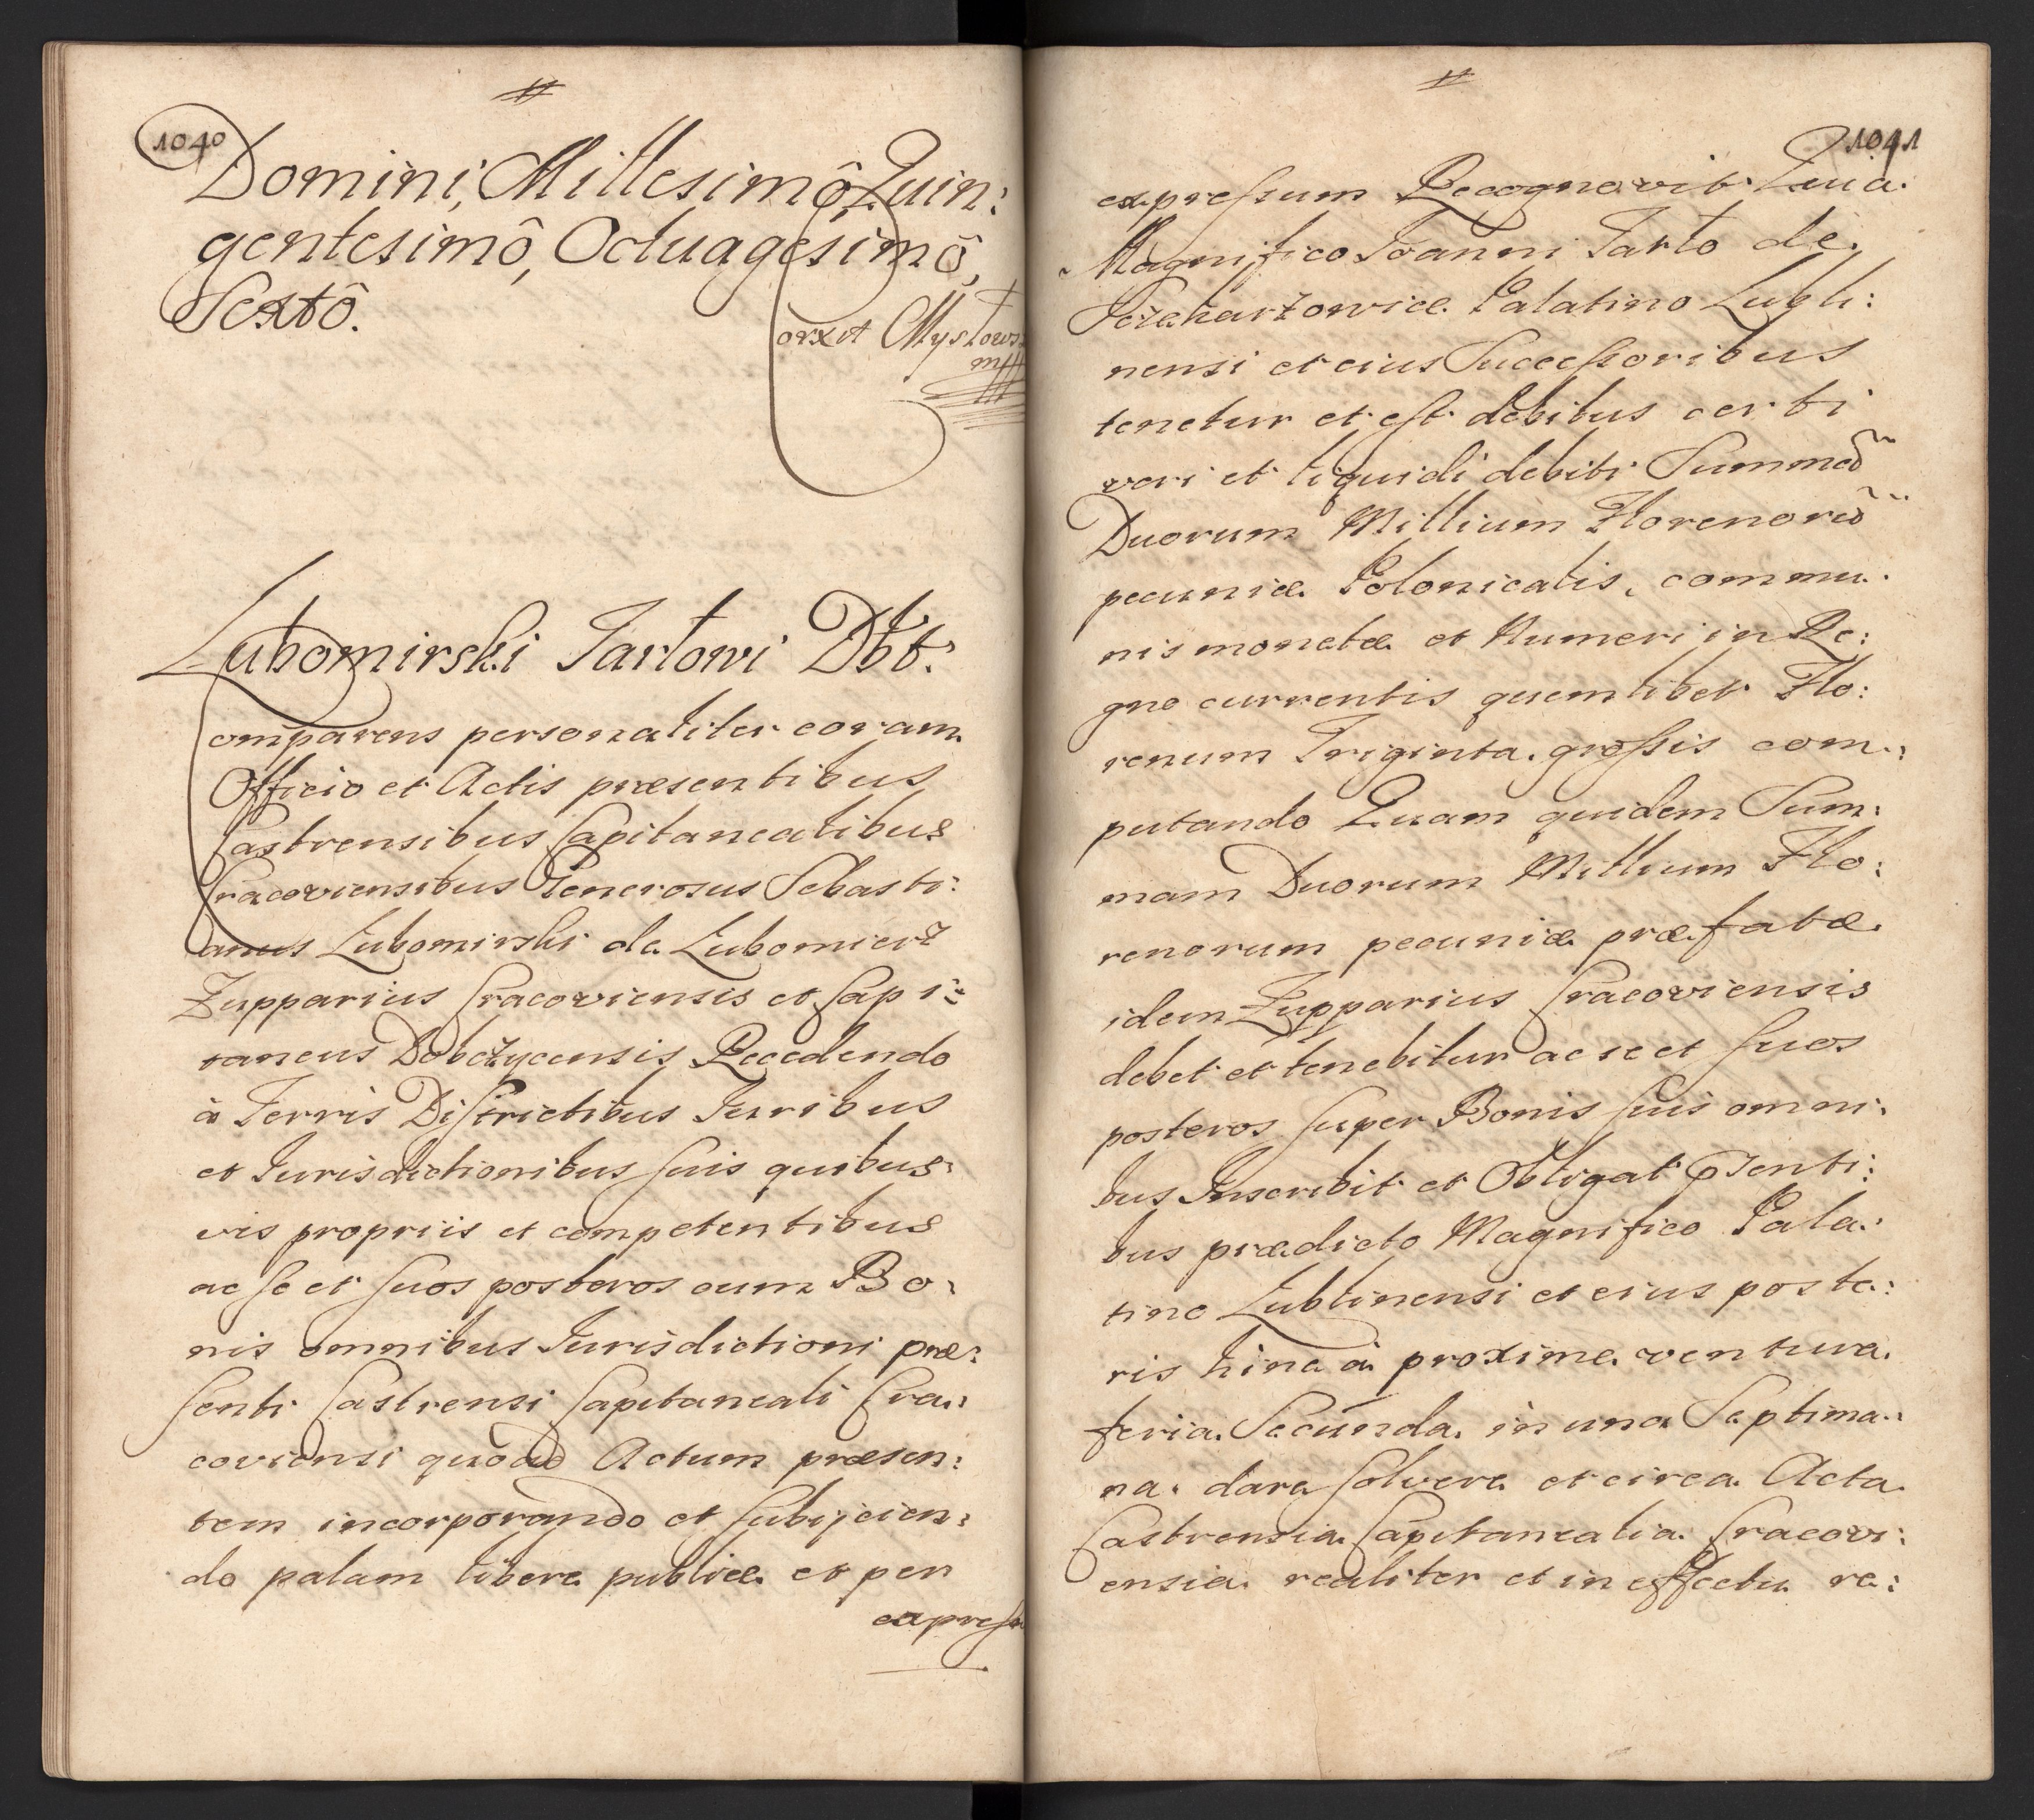 1040
Domini, Millesimô, Quin:
gentesimô, Octuagesimô,
Sextô.
Lubomirski Tarłowi Dbt:
Comparens personaliter coram
Officio et Actis præsentibus
Castrensibus Capitanealibus
Cracoviensibus Generosus Sebasti:
anus Lubomirski de Lubomierz
Zupparius Cracoviensis et Capi:
taneus Dobczycensis Recedendo
à Terris Districtibus Iuribus
et Iurisdictionibus suis quibus:
vis propriis et competentibus
ac se et suos posteros cum Bo:
nis omnibus Iurisdictioni præ:
senti Castrensi Capitaneali Cra:
coviensi quoad Actum præsen:
tem incorporando et subijcien:
do palam libere publice et per
express
1041
expressum Recognovit Quia
Magnifico Ioanni Tarło de
Szczekarzowice Palatino Lubli:
nensi et eius Successoribus
tenetur et est debitus certi
veri et liquidi debiti Summã
Duorum Millium Florenorũ
pecuniæ Polonicalis, commu:
nis monetæ et Numeri in Re:
gno currentis quemlibet Flo:
renum Triginta grossis com:
putando Quam quidem Sum:
mam Duorum Millium Flo:
renorum pecuniæ præfatæ
idem Zupparius Cracoviensis
debet et tenebitur ac se et suos
posteros super Bonis suis omni:
bus Inscribit et Obligat pñsenti:
bus prædicto Magnifico Pala:
tino Lublinensi et eius poste:
ris hinc à proxime ventura
feria Secunda in una Septima:
na dare solvere et circa Acta
Castrensia Capitanealia Cracovi:
ensia realiter et in effectu re: